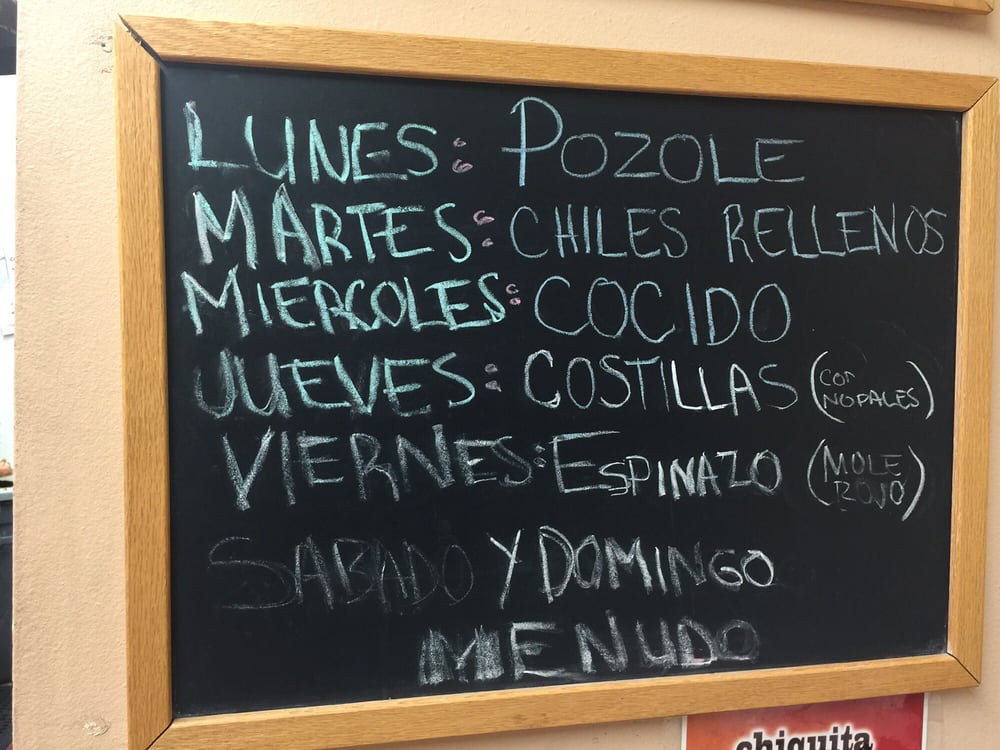 LUNES: POZOLE
MARTES: CHILES RELLENOS
MIERCOLES: COCIDO
JUEVES: COSTILLAS (CON NOPALES)
VIERNES: ESPINAZO (MOLE ROJO)
SABADO Y DOMINGO
MENUDO
chiquita